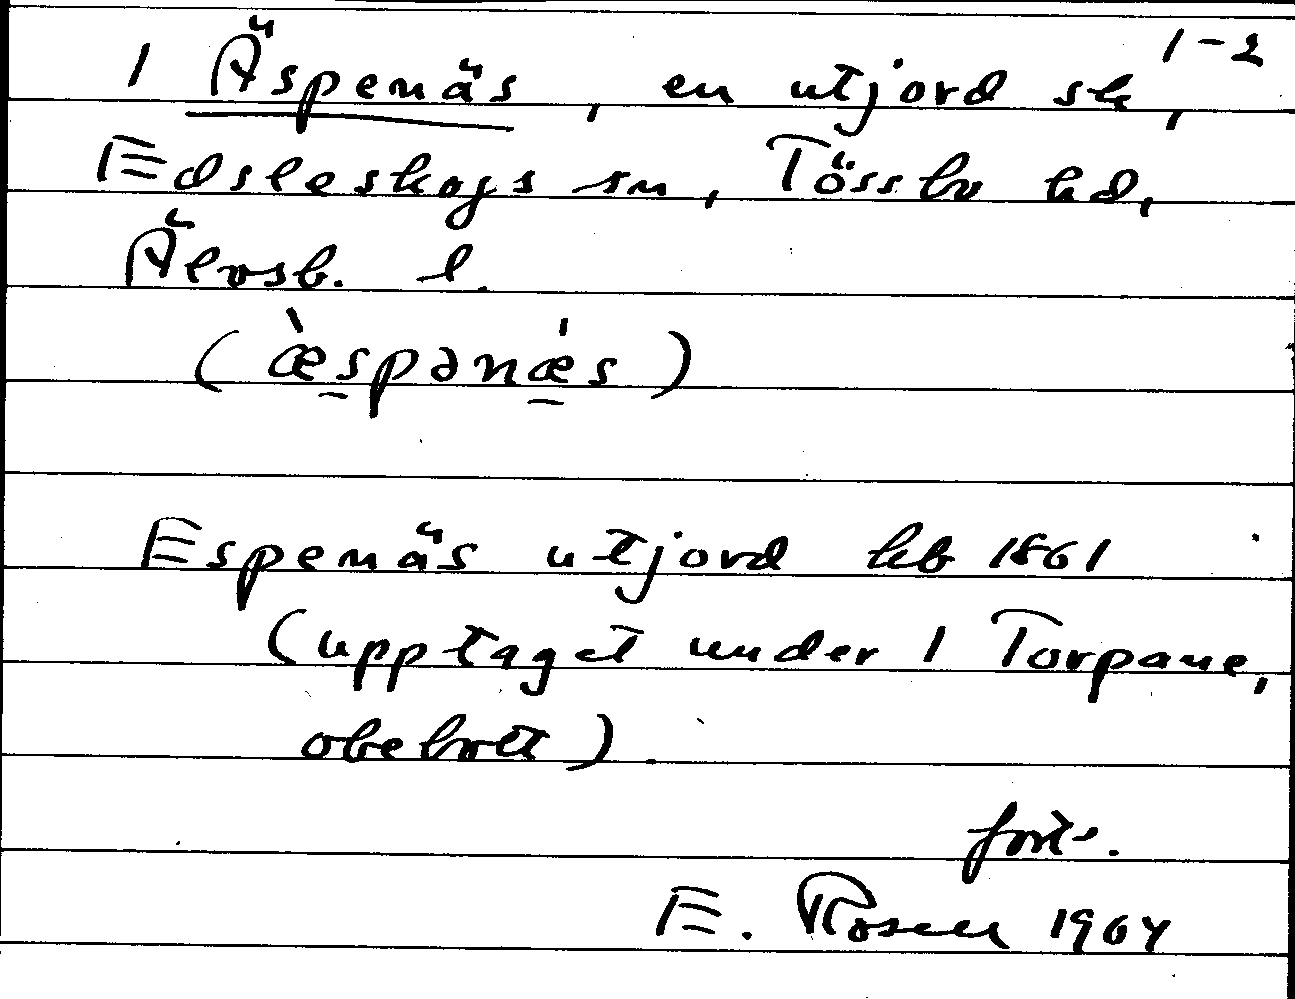 1-2
1 Äspenäs, en utjord sk,
Edsleskogs sn, Tössbo hd,
Älvsb. l.
(æ̀spənǽs)
Espenäs utjord hb 1861
(upptaget under 1 Torpane,
obebott).
forts.
E. Rosell 1964